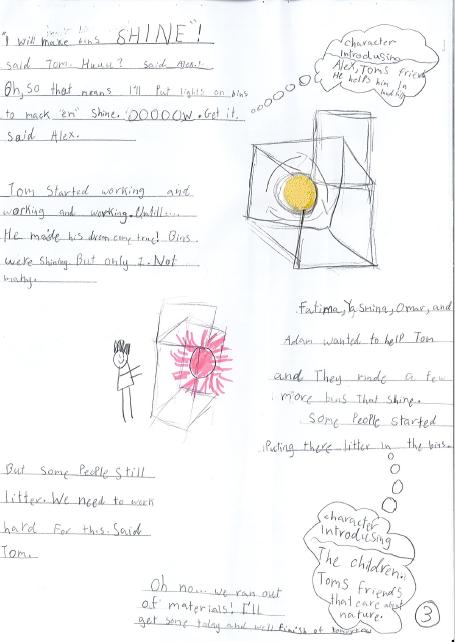 "I will make bins SHINE"!
said Tom. Huuu? said Alex.
Oh, so that means I'll Put lights on bins
to mack "en" Shine. OOOOOW. Get it.
Said Alex.
character
Introdusing
Alex, Toms friend
He helps him in
Tom Started working and
working and working. Untill....
He maide his dream come true! Bins
were Shining. But only 1. Not
many.
Fatima, Yasmina, Omar, and
Adam wanted to help Tom
and They made a few
more bins That shine.
Some People started
Puting there litter in the bins.
But some People Still
litter. We need to work
hard For this. Said
Tom.
character
Introdusing
The children.
Toms friends
that care about
nature.
Oh no... we ran out
of materials! I'll
get some today and we'll finish of tomorrow
3